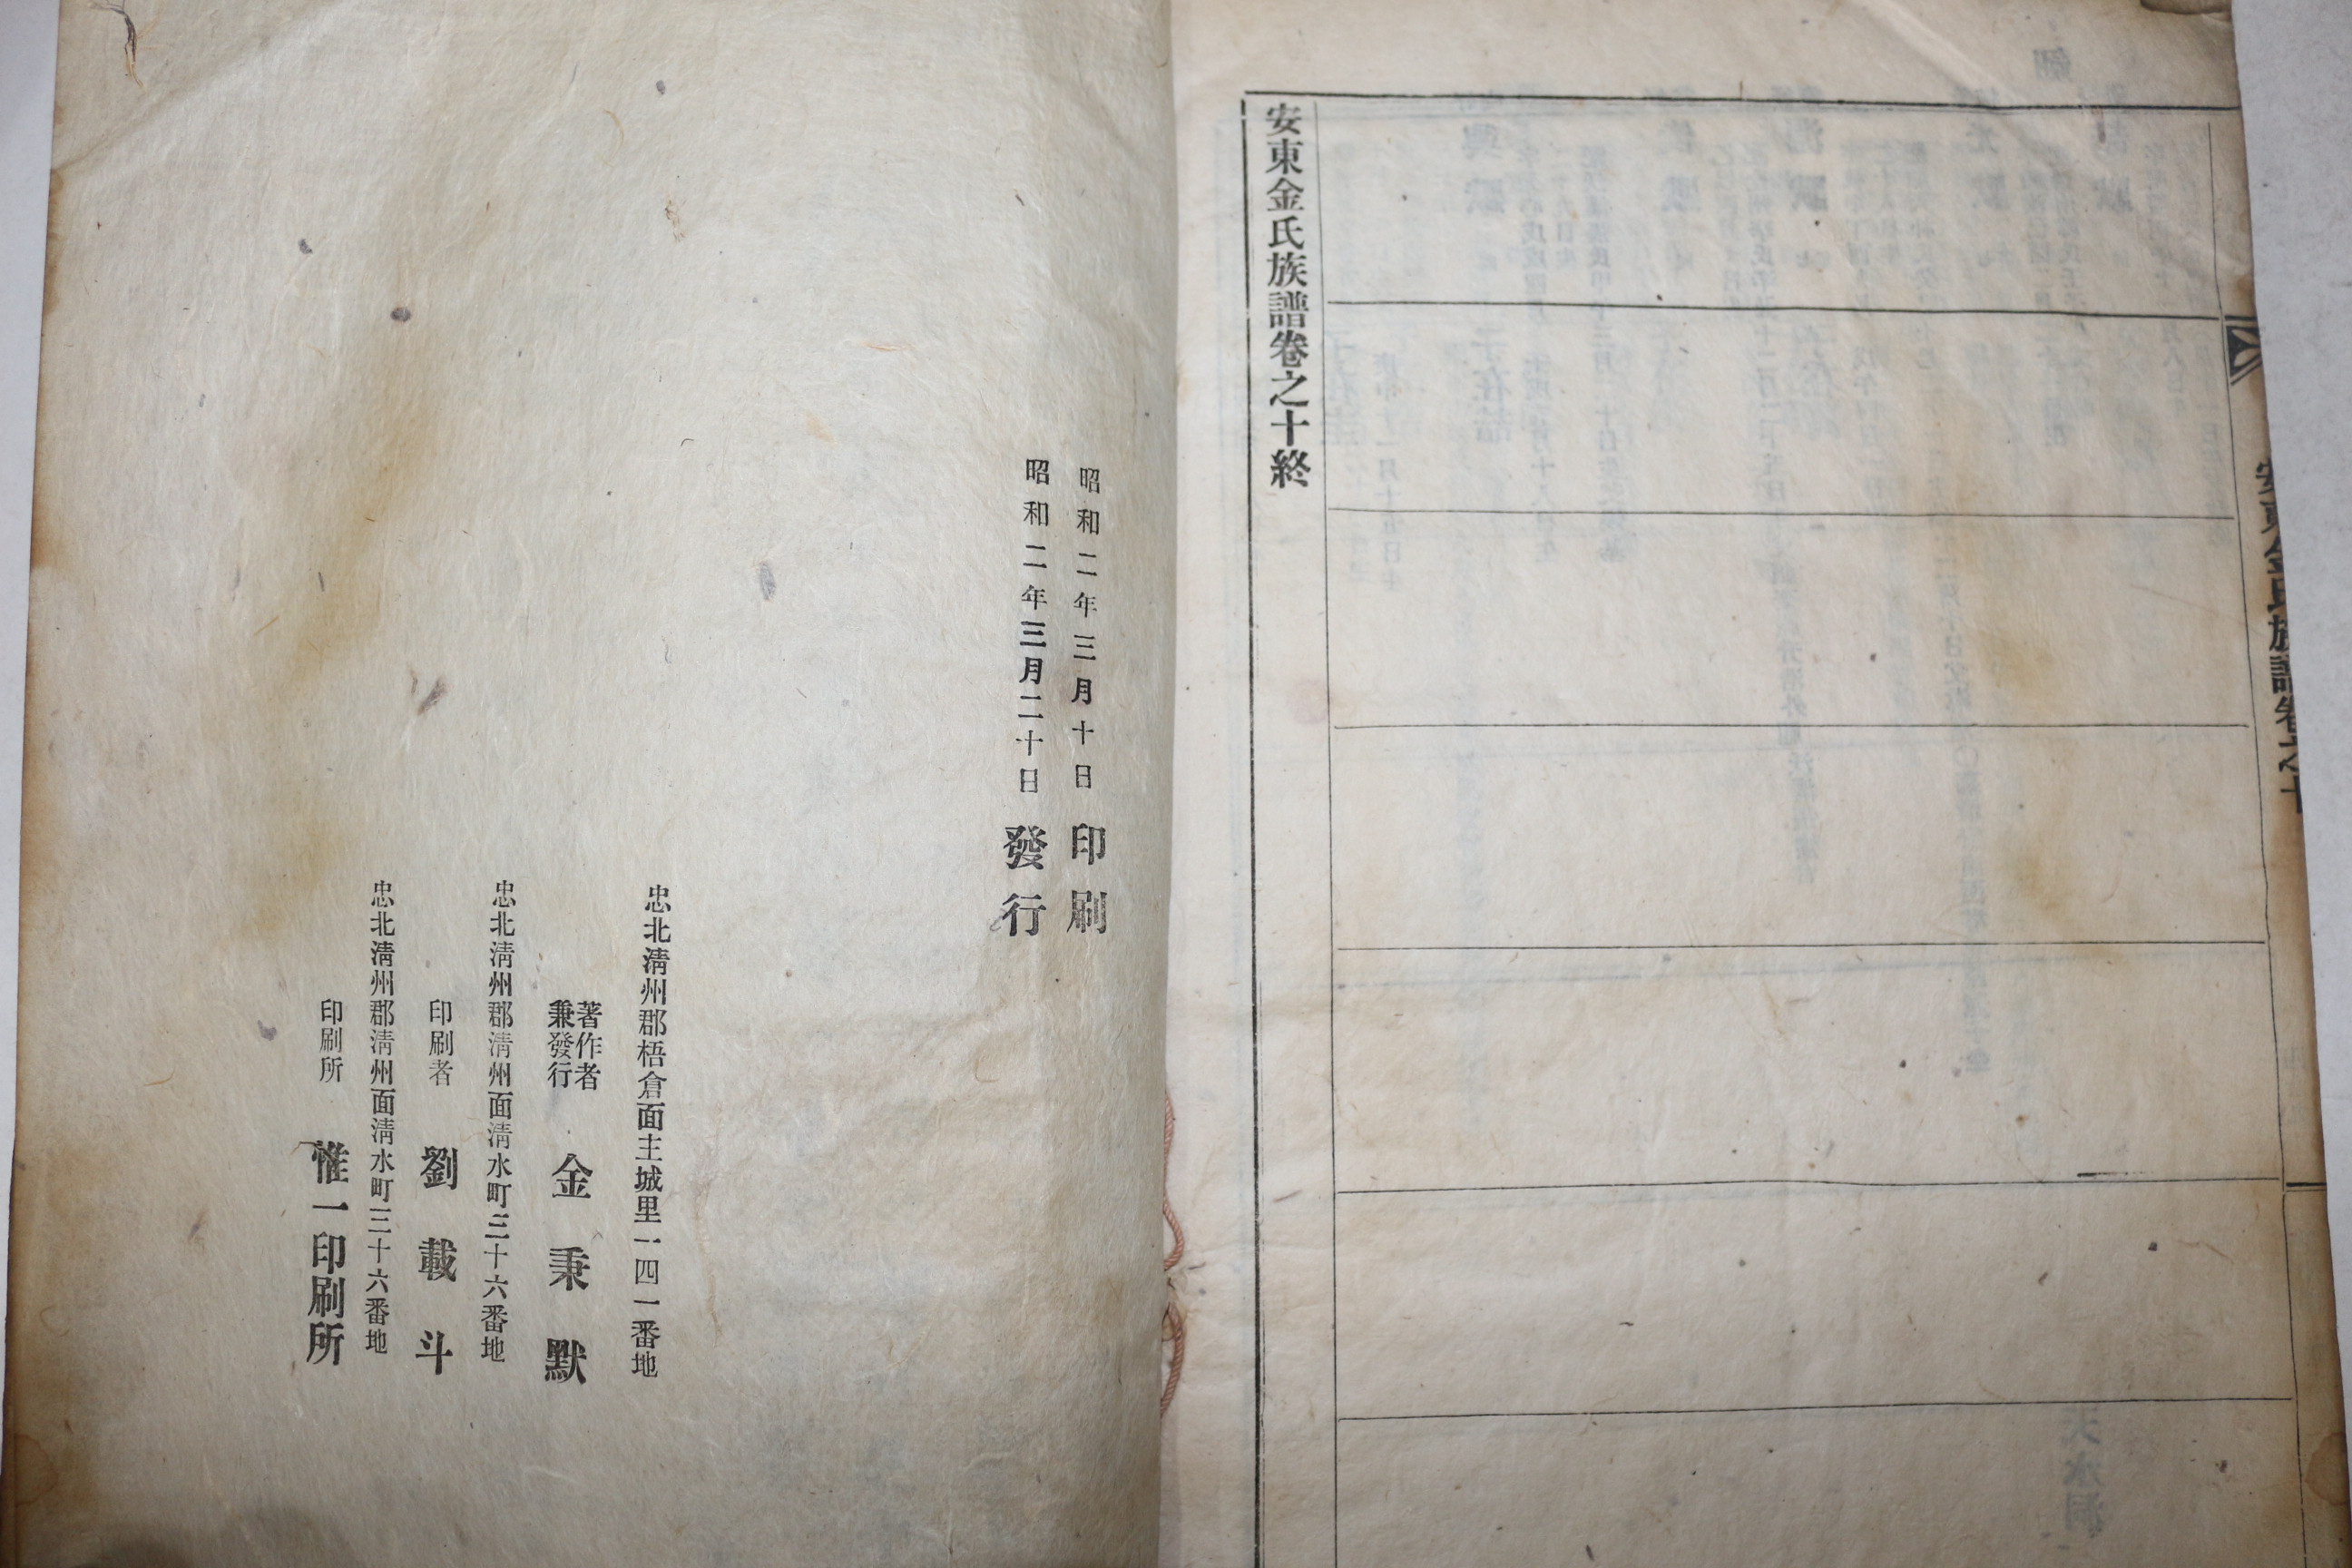 安東金氏族譜卷之十
安東金氏族譜卷之十終
昭和二年三月十日 印刷
昭和二年三月二十日 發行
忠北淸州郡梧倉面主城里一四一番地
著作者
兼發行
金秉默
忠北淸州郡淸州面淸水町三十六番地
印刷者 劉載斗
忠北淸州郡淸州面淸水町三十六番地
印刷所 惟一印刷所